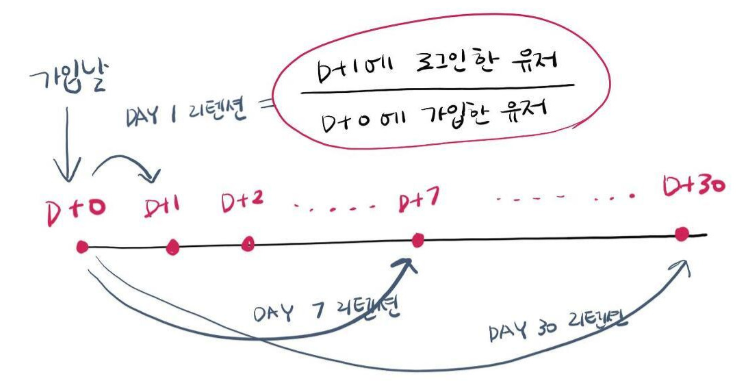 가입날
DAY 1 리텐션 =
D+1에 로그인한 유저
D+0에 가입한 유저
D+0 D+1 D+2 ..... D+7 ---- ... D+30
DAY 7 리텐션
DAY 30 리텐션